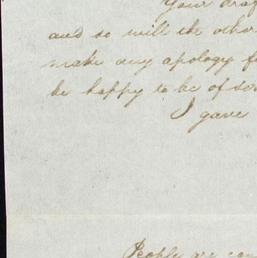 Your draf
and so will the other
make any apology f
be happy to be of ser
I gave
People are con